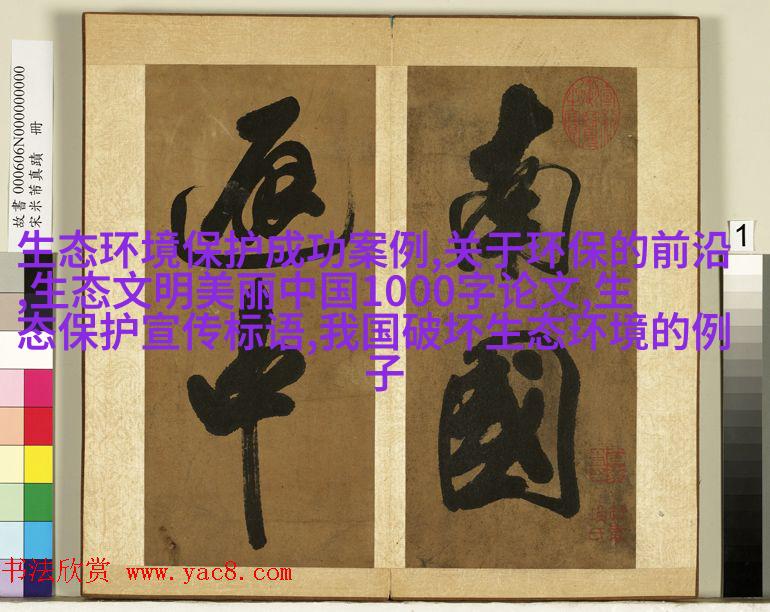 南國
中
生态环境保护成功案例,关于环保的前沿
,生态文明美丽中国1000字论文,生
态保护宣传标语,我国破坏生态环境的例
子
故書 000606N000000000
宋米芾真蹟 冊
1
书法欣赏 www.yac8.com